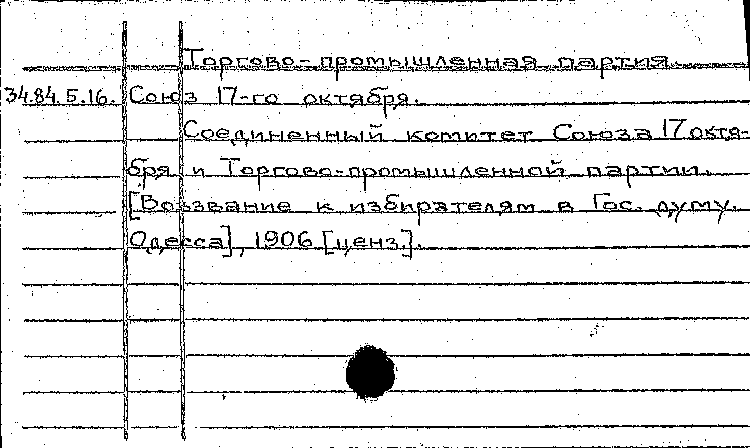 Торгово-промышленная партия.
34.84.5.16. Союз 17-го октября.
Соединенный комитет Союза 17 октя-
бря и Торгово-промышленной партии.
[Воззвание к избирателям в Гос. думу.
Одесса], 1906 [ценз.].